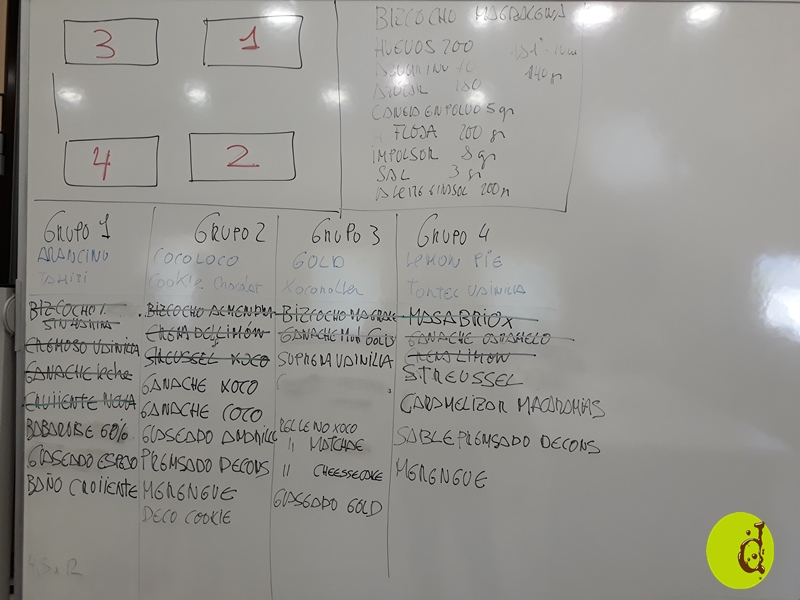 3
1
4
2
BIZCOCHO MAGDALENA
HUEVOS 200
140 gr
CANELA EN POLVO 5 gr
FLOJA 200 gr
IMPULSOR 8 gr
SAL 3 gr
ACEITE GIRASOL 200
GRUPO 1
ARANCINO
TAHITI
BIZCOCHO
SIN HARINA
CREMOSO VAINILLA
GANACHE leche
BABAROISE 60%
GLASEADO ESPEJO
BAÑO CRUJIENTE
GRUPO 2
COCOLOCO
Cookie
BIZCOCHO ALMENDRA
CREMA DE LIMÓN
STREUSSEL XOCO
GANACHE XOCO
GANACHE COCO
GLASEADO AMARILL
PRENSADO DECONS
MERENGUE
DECO COOKIE
GRUPO 3
GOLD
BIZCOCHO MAGDALE
GANACHE GOLD
SUPREMA VAINILLA
RELLENO XOCO
" MATCHAE
" CHEESSECAKE
GLASEADO GOLD
GRUPO 4
LEMON PIE
VAINILLA
MASA BRIOX
GANACHE CARAMELO
CREMA LIMÓN
STREUSSEL
CARAMELIZAR MACADAMIAS
SABLE PRENSADO DECONS
MERENGUE
d